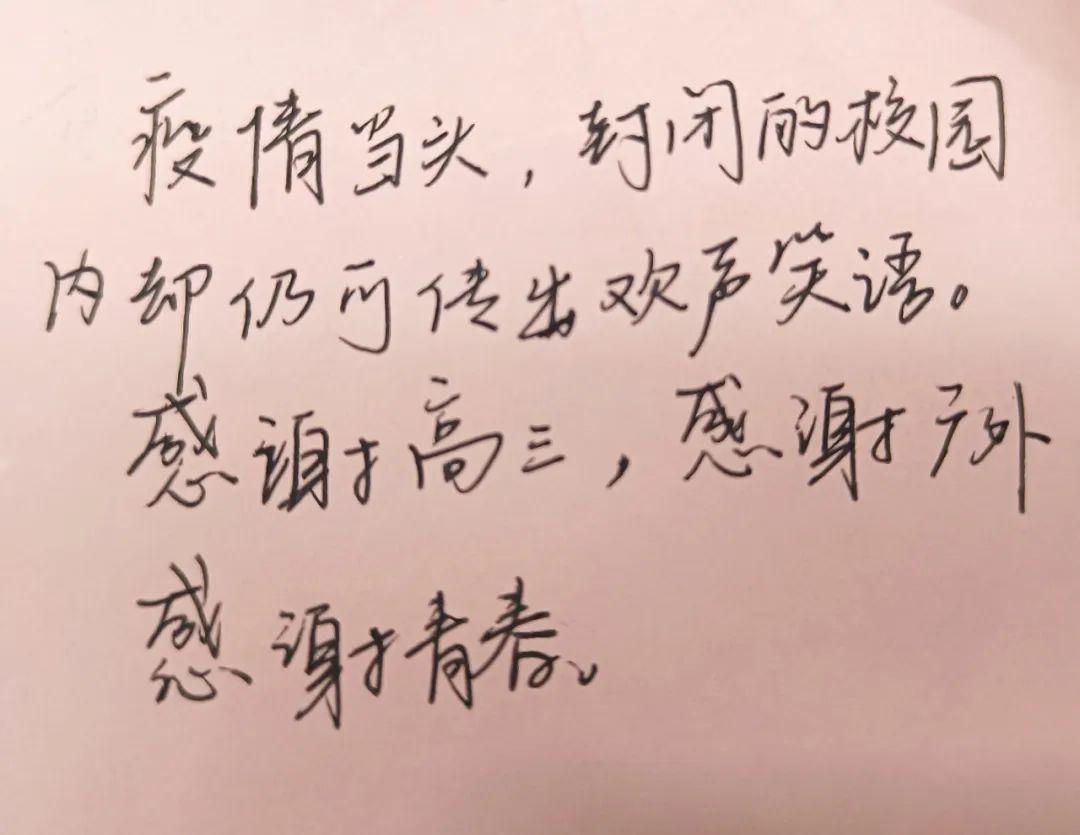 疫情当头，封闭的校园
内却仍可传出欢声笑语。
感谢高三，感谢广外
感谢青春。